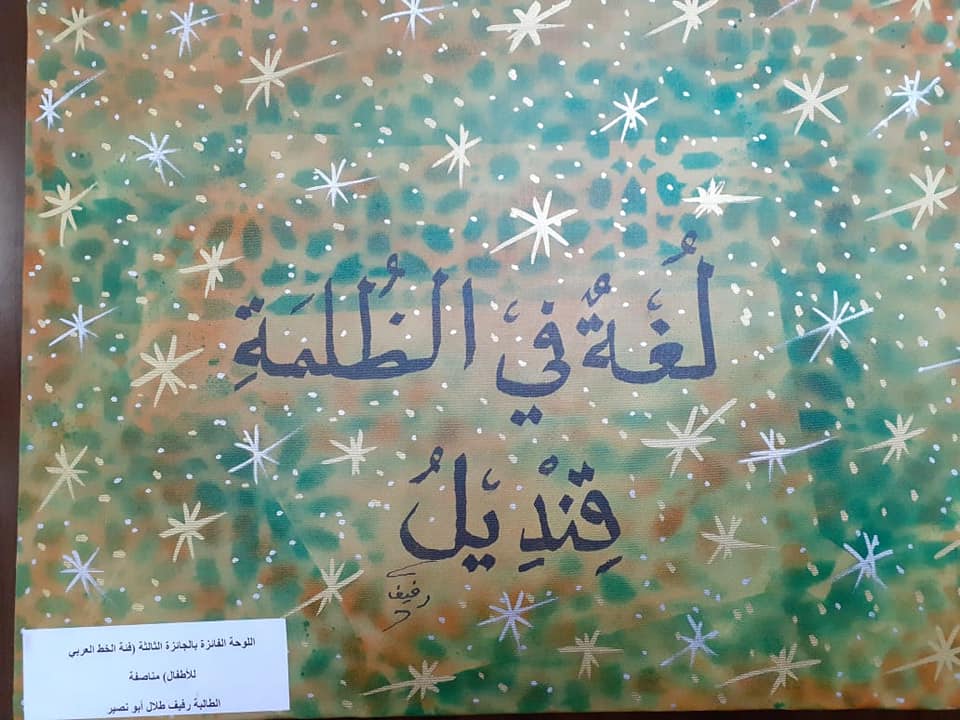 لُغَةٌ في الظُلمَةِ
قِنْدِيلُ
رفيف
اللوحة الفائزة بالجائزة الثالثة (فئة الخط العربي
للأطفال) مناصفة
الطالبة رفيف طلال أبو نصير